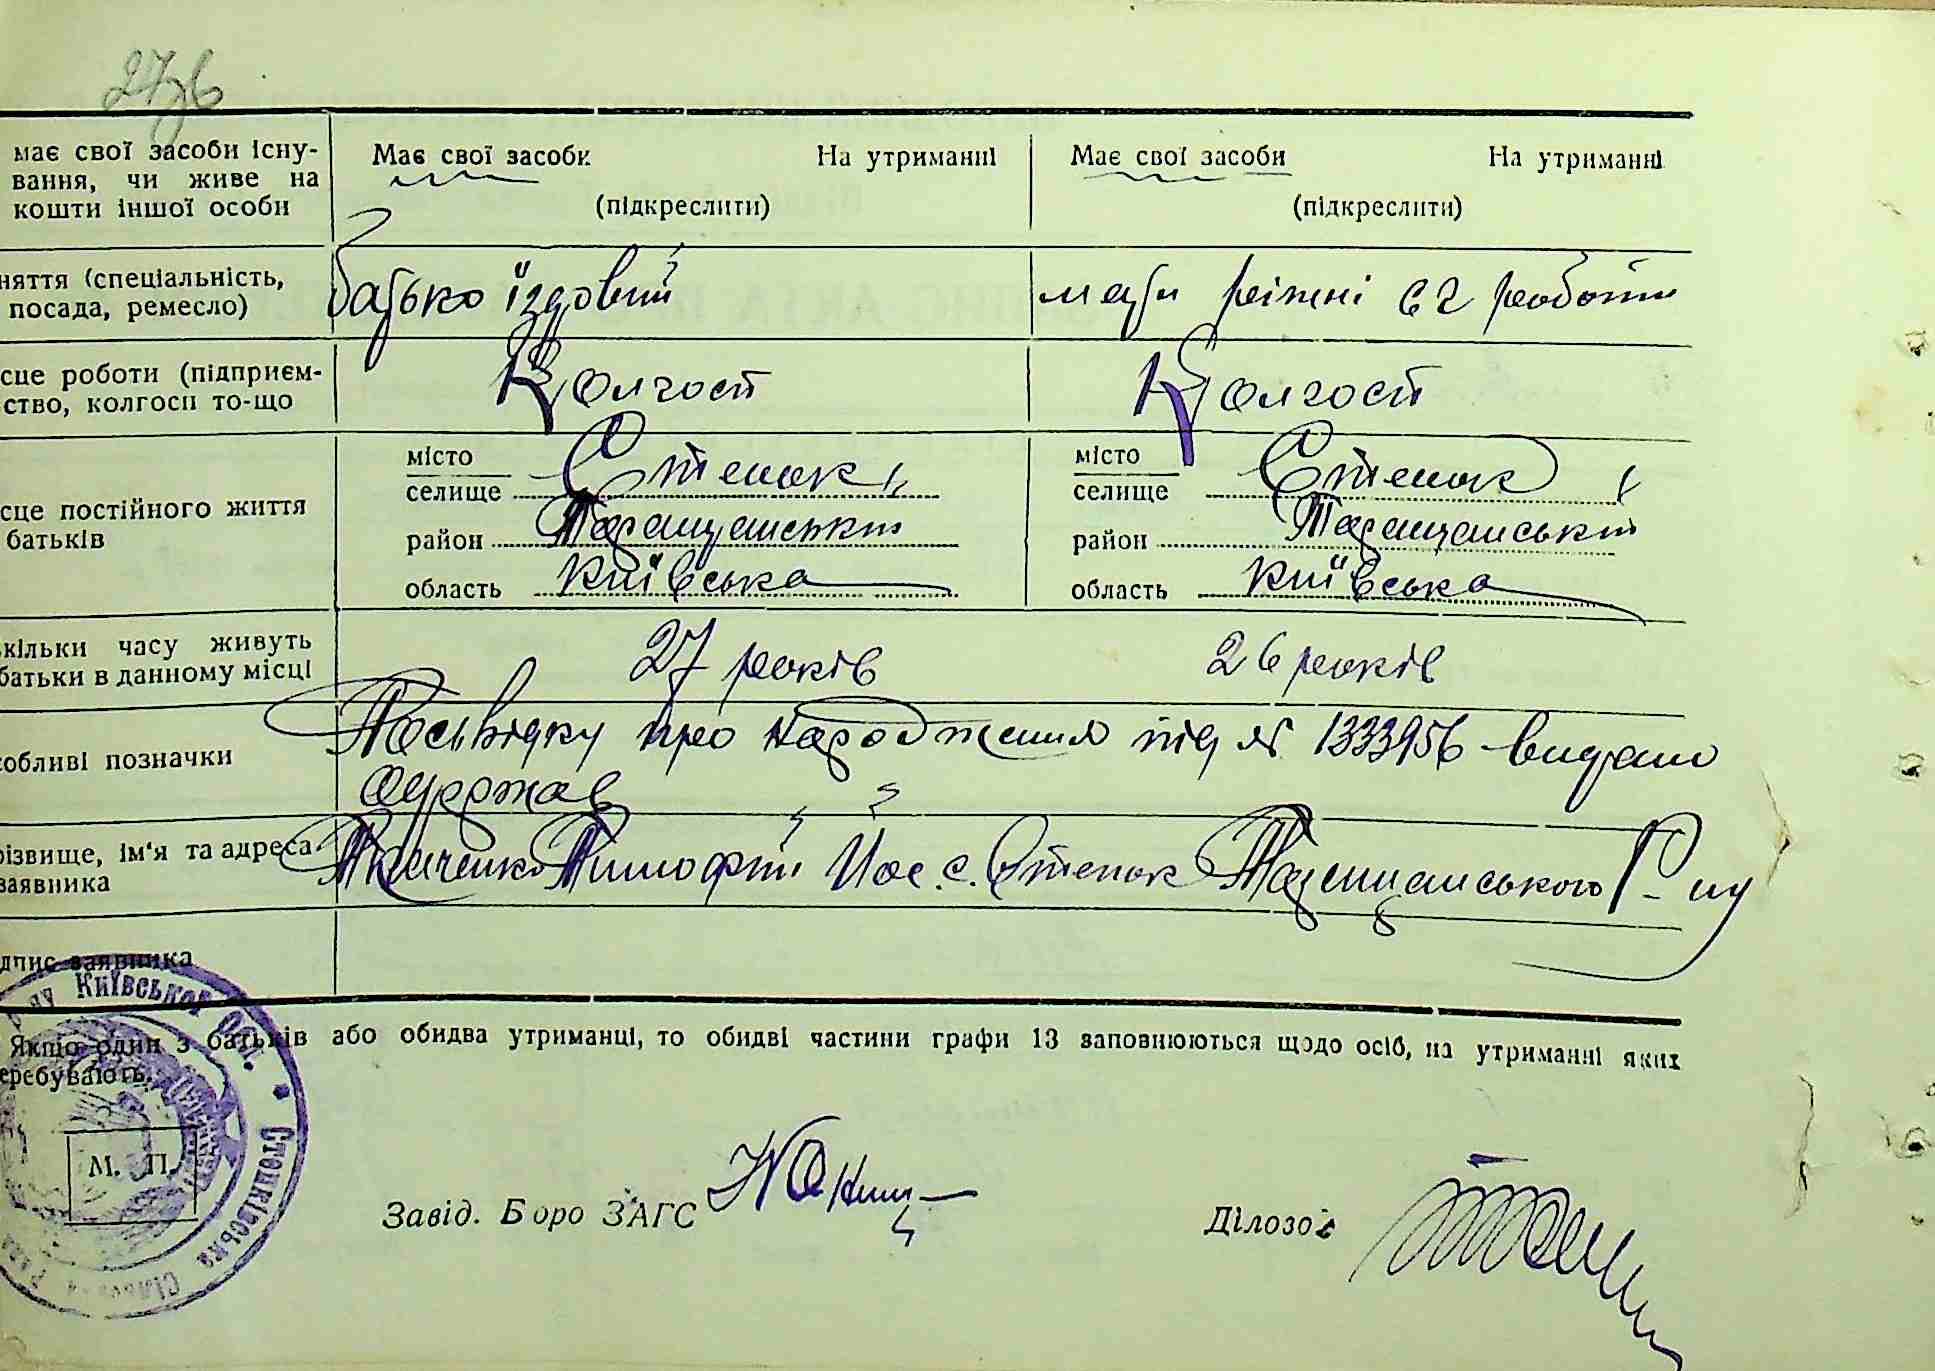 27зв
має свої засоби існу-
вання, чи живе на
кошти іншої особи
Має свої засоби
На утриманні
(підкреслити)
Має свої засоби
На утриманні
(підкреслити)
няття (спеціальність,
посада, ремесло)
батько їздовий
мати ріжні с г роботи
сце роботи (підприєм-
ство, колгосп то-що
Колгосп
Колгосп
сце постійного життя
батьків
місто
селище Стенок
район Таращанський
область Київська
місто
селище Стенок
район Таращанський
область Київська
кільки часу живуть
батьки в данному місці
27 років
26 років
собливі позначки
Посьвідку про народження під № 1333956 видано
одержав
різвище, ім'я та адреса
заявника
Ткаченко Тимофій Йос. с. Стенок Таращанського Р-ну
дпис заявника
Якщо один з батьків або обидва утриманці, то обидві частини графи 13 заповнюються щодо осіб, на утриманні яких
еребувають.
ну Київської Обл. * Стенківська Сільська Рада
М. П.
Завід. Бюро ЗАГС
Діловод